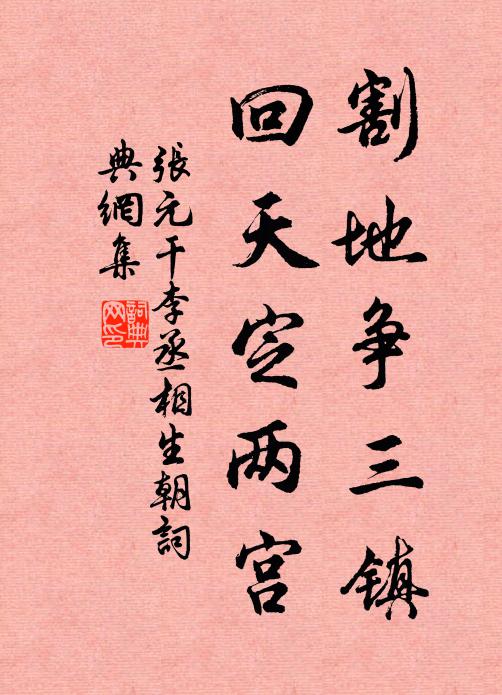 割地争三镇
回天定两宫
張元干李丞相生朝詞
典網集
詞典网印